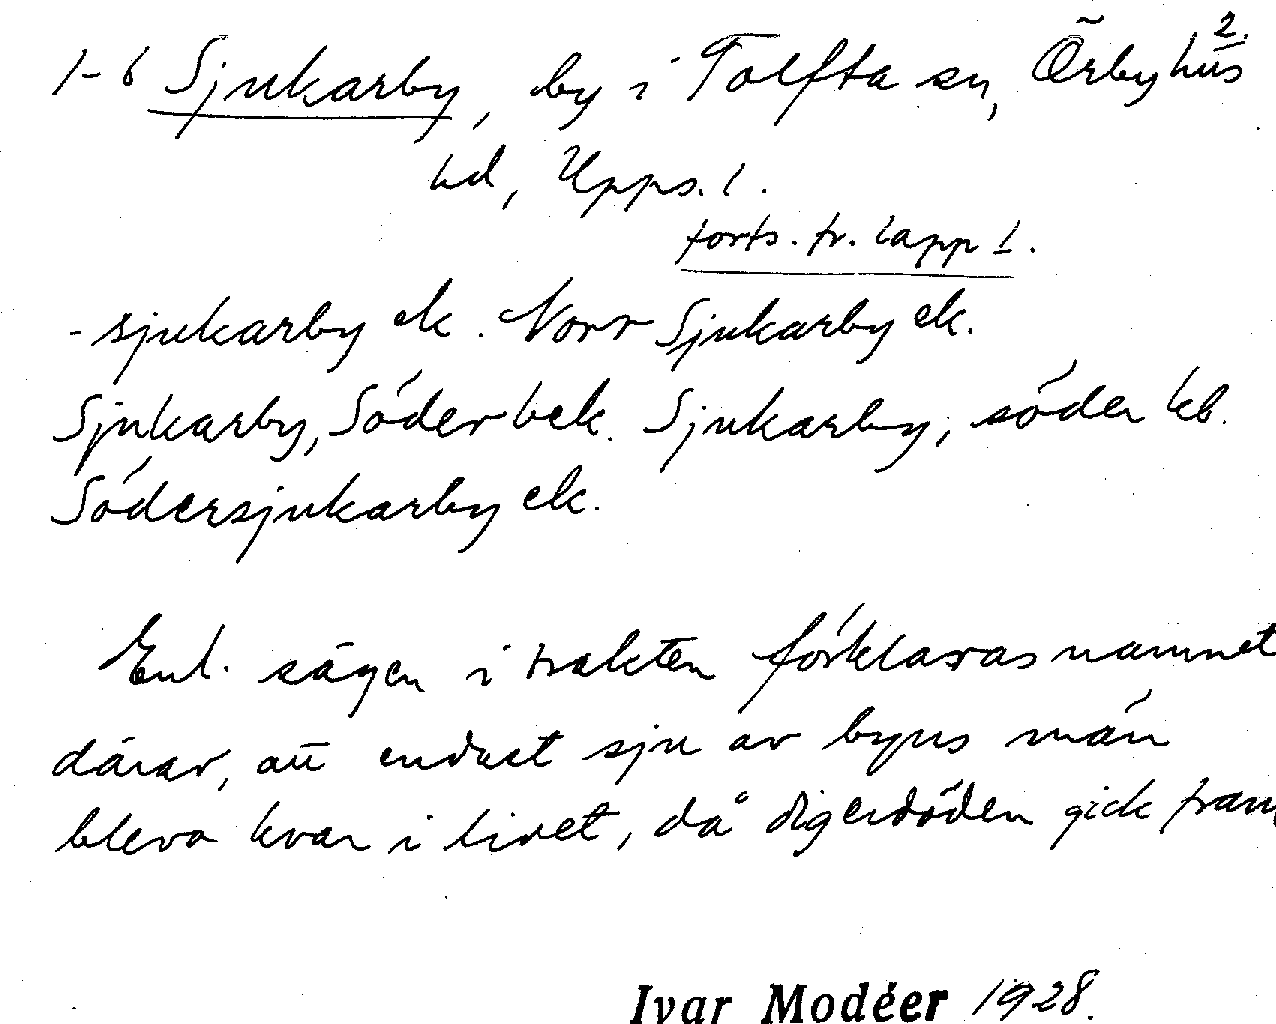 2.
1-6 Sjukarby, by i Tolfta sn, Örbyhus
hd, Upps. l.
forts. fr. lapp 1.
-sjukarby ek. Norr Sjukarby ek.
Sjukarby, Söder hek. Sjukarby, söder kb.
Södersjukarby ek.
Enl. sägen i trakten förklaras namnet
därav, att endast sju av byns män
blevo kvar i livet, då digerdöden gick fram
Ivar Modéer 1928.